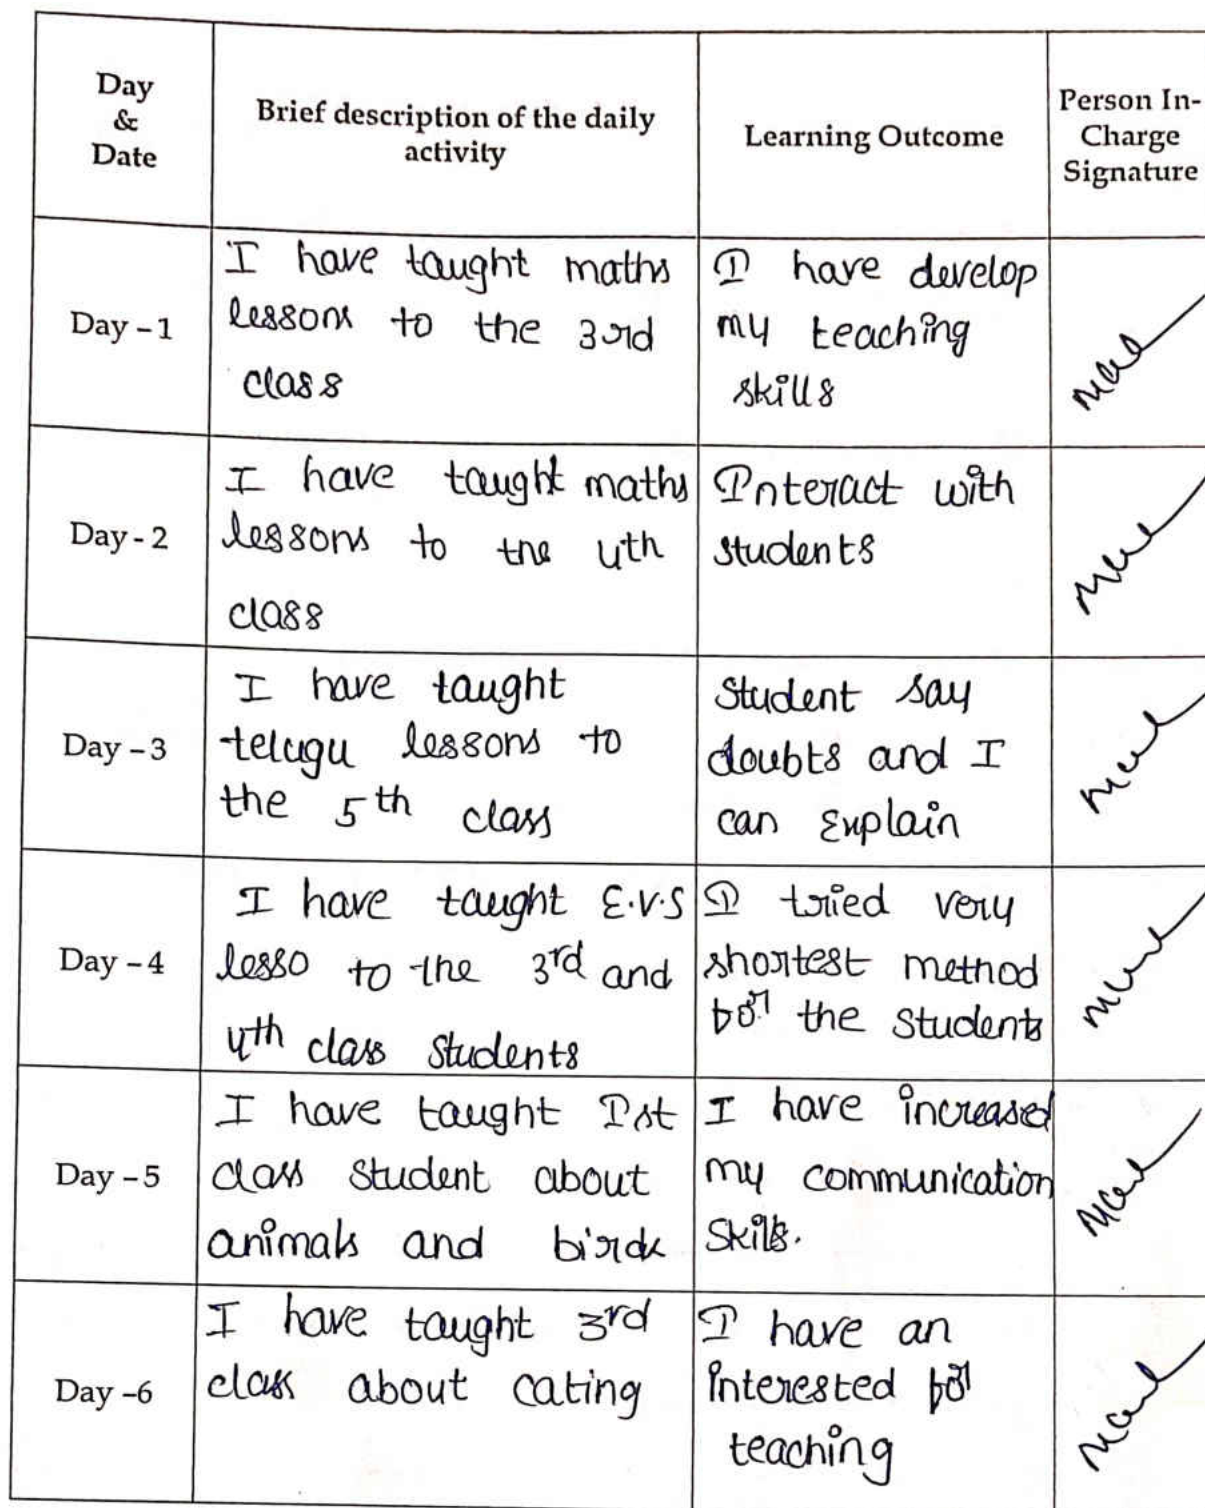 Day
&
Date
Brief description of the daily
activity
Learning Outcome
Person In-
Charge
Signature
Day - 1
I have taught maths
lessons to the 3rd
class
I have develop
my teaching
skills
Day - 2
I have taught maths
lessons to the 4th
class
Interact with
students
Day - 3
I have taught
telugu lessons to
the 5th class
Student say
doubts and I
can Explain
Day - 4
I have taught E.V.S
lesso to the 3rd and
4th class students
I tried very
shortest method
for the students
Day - 5
I have taught Ist
class student about
animals and birds
I have increased
my communication
skills.
Day -6
I have taught 3rd
class about cating
I have an
interested for
teaching